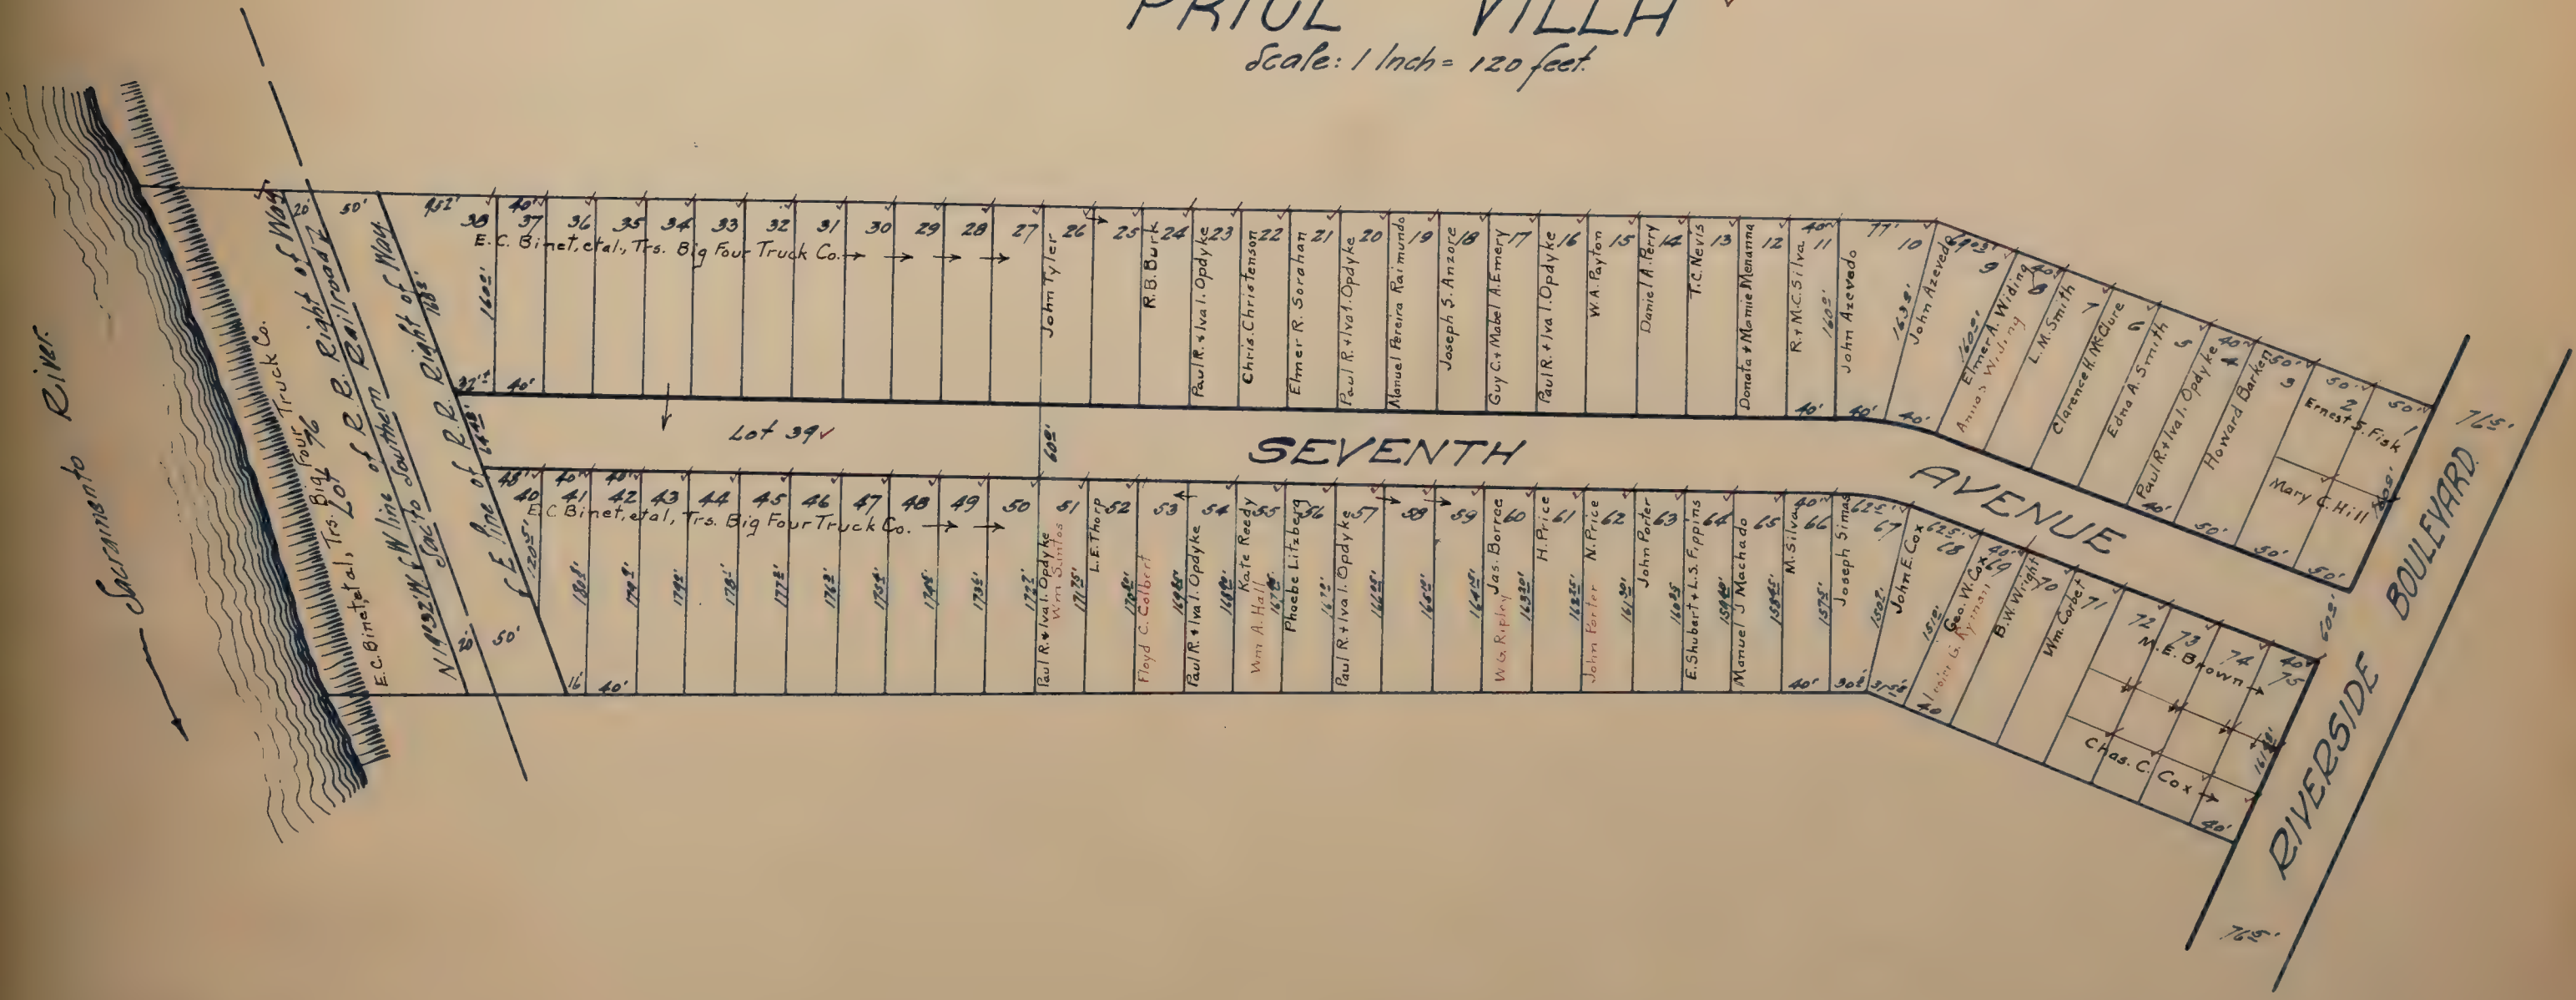 VILLA
Scale: 1 Inch = 120 feet.
Sacramento River
E.C. Binet, et al, Trs. Big Four Truck Co.
Lot 76
Line of R.R. Right of Way
Sac'to Southern Railroad
S.E. line of R.R. Right of Way
20' 50' 452' 40' 40' 77' 69.03' 40' 40' 50' 50' 50'
38 37 36 35 34 33 32 31 30 29 28 27 26 25 24 23 22 21 20 19 18 17 16 15 14 13 12 11 10 9 8 7 6 5 4 3 2 1
E.C. Binet, et al., Trs. Big Four Truck Co. → → → →
John Tyler
R.B. Burk
Paul R. & Iva I. Opdyke
Chris. Christenson
Elmer R. Sorahan
Paul R. & Iva I. Opdyke
Manuel Pereira Raimundo
Joseph S. Anzore
Guy C. & Mabel A. Emery
Paul R. & Iva I. Opdyke
W.A. Payton
Daniel A. Perry
T.C. Nevis
Donata & Mamie Menanna
R. & M.C. Silva
John Azevedo
John Azevedo
Elmer A. Widing
L.M. Smith
Clarence H. McClure
Edna A. Smith
Paul R. & Iva I. Opdyke
Howard Barken
Ernest S. Fisk
Mary C. Hill
160.0' 40' 160.0' 163.8' 160.0'
40' 40' 40' 40' 50' 50' 50'
Lot 39
60.0'
SEVENTH AVENUE
RIVERSIDE BOULEVARD
76.5'
60.0'
76.5'
48' 40' 40' 40' 62.5' 62.5' 40' 40'
40 41 42 43 44 45 46 47 48 49 50 51 52 53 54 55 56 57 58 59 60 61 62 63 64 65 66 67 68 69 70 71 72 73 74 75
E.C. Binet, et al, Trs. Big Four Truck Co. → →
Paul R. & Iva I. Opdyke
Wm. Santos
L.E. Thorp
Floyd C. Colbert
Paul R. & Iva I. Opdyke
Kate Reedy
Wm A. Hall
Phoebe Litzberg
Paul R. & Iva I. Opdyke
Jas. Borree
W.G. Ripley
H. Price
N. Price
John Porter
John Porter
E. Shubert & L.S. Fippins
Manuel J Machado
M. Silva
Joseph Simas
John E. Cox
Geo. W. Cox
B.W. Wright
Wm. Corbet
M.E. Brown →
Chas. C. Cox →
20' 50' 16' 40' 40' 30.8' 40 40'